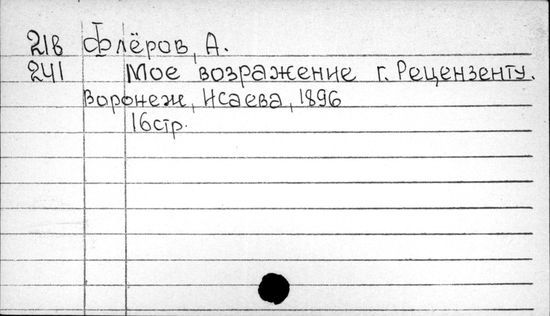 21в Флёров, А.
241 Мое возражение г. Рецензенту.
Воронеж, Исаева, 1896
16стр.